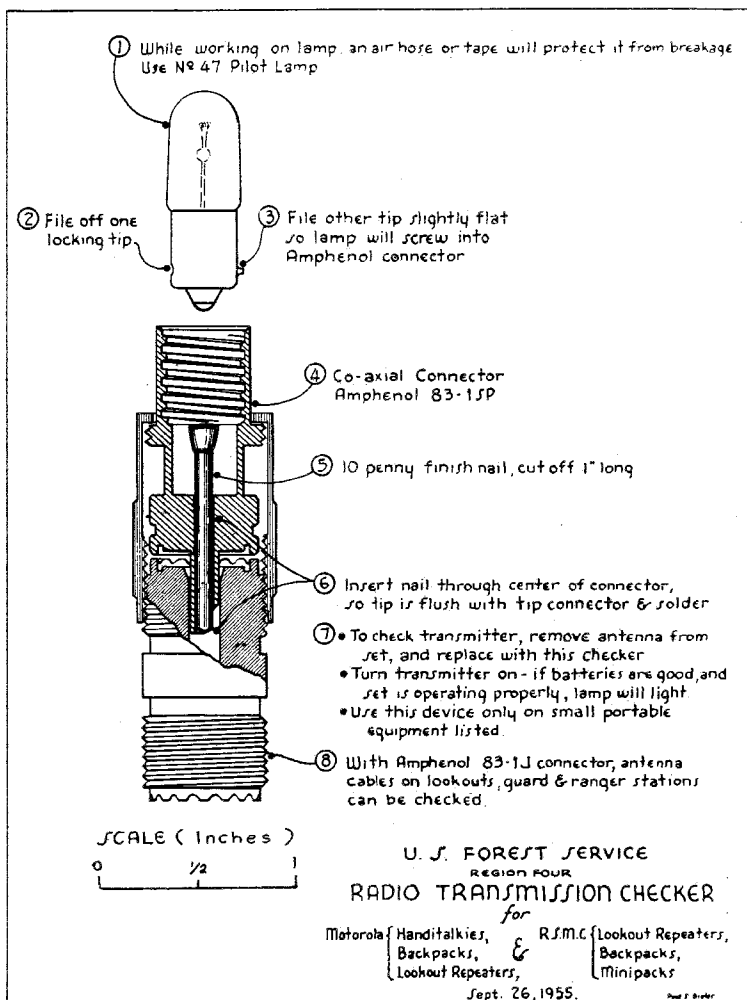 ① While working on lamp, an air hose or tape will protect it from breakage
Use Nº 47 Pilot Lamp
② File off one
locking tip.
③ File other tip slightly flat
so lamp will screw into
Amphenol connector
④ Co-axial Connector
Amphenol 83-1SP
⑤ 10 penny finish nail, cut off 1" long
⑥ Insert nail through center of connector,
so tip is flush with tip connector & solder
⑦ • To check transmitter, remove antenna from
set, and replace with this checker
• Turn transmitter on - if batteries are good, and
set is operating properly, lamp will light.
• Use this device only on small portable
equipment listed.
⑧ With Amphenol 83-1J connector, antenna
cables on lookouts, guard & ranger stations
can be checked.
SCALE (Inches)
0 1/2 1
U. S. FOREST SERVICE
REGION FOUR
RADIO TRANSMISSION CHECKER
for
Motorola { Handitalkies, & R.S.M.C { Lookout Repeaters,
Backpacks, Backpacks,
Lookout Repeaters, Minipacks
Sept. 26, 1955.